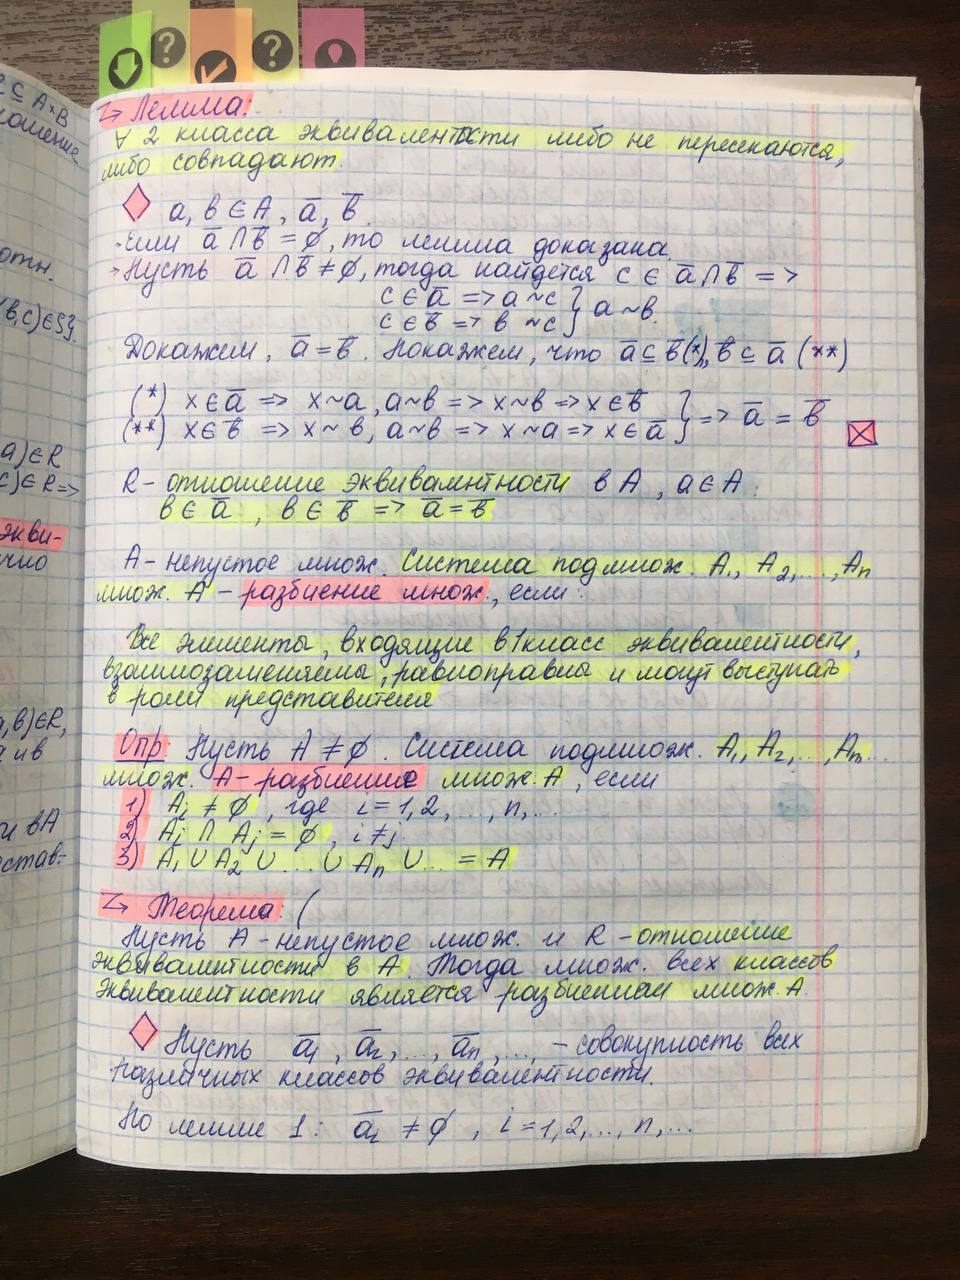 ⊆ A×B
ошение
отн.
(b,c)∈S}.
a)∈R
c)∈R=>
экви-
чно
a,b)∈R,
a и b
и в A
став-
↳ Лемма:
∀ 2 класса эквивалентности либо не пересекаются,
либо совпадают.
a, b ∈ A, a̅, b̅
·Если a̅ ∩ b̅ = ∅, то лемма доказана.
·Пусть a̅ ∩ b̅ ≠ ∅, тогда найдется c ∈ a̅ ∩ b̅ =>
c ∈ a̅ => a ~ c } a ~ b.
c ∈ b̅ => b ~ c
Докажем, a̅ = b̅. Покажем, что a̅ ⊆ b̅ (*), b̅ ⊆ a̅ (**)
(*) x ∈ a̅ => x ~ a, a ~ b => x ~ b => x ∈ b̅ } => a̅ = b̅
(**) x ∈ b̅ => x ~ b, a ~ b => x ~ a => x ∈ a̅
R - отношение эквивалентности в A, a ∈ A:
b ∈ a̅, b ∈ b̅ => a̅ = b̅
A - непустое множ. Система подмнож. A₁, A₂, ..., Aₙ
множ. A - разбиение множ., если:
Все элементы, входящие в 1 класс эквивалентности,
взаимозаменяемы, равноправны и могут выступать
в роли представителя
Опр: Пусть A ≠ ∅. Система подмнож. A₁, A₂, ..., Aₙ...
множ. A - разбиение множ. A, если
1) Aᵢ ≠ ∅, где i = 1,2, ..., n, ...
2) Aᵢ ∩ Aⱼ = ∅, i ≠ j
3) A₁ ∪ A₂ ∪ ... ∪ Aₙ ∪ ... = A
↳ Теорема: (
Пусть A - непустое множ. и R - отношение
эквивалентности в A. Тогда множ. всех классов
эквивалентности является разбиением множ. A.
Пусть a̅₁, a̅₂, ..., a̅ₙ, ..., - совокупность всех
различных классов эквивалентности.
По лемме 1: a̅ᵢ ≠ ∅, i = 1,2, ..., n, ...